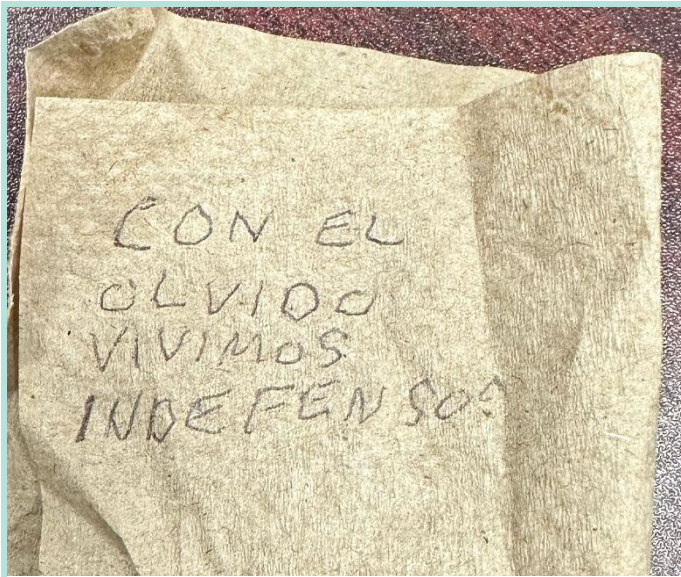 CON EL
OLVIDO
VIVIMOS
INDEFENSOS